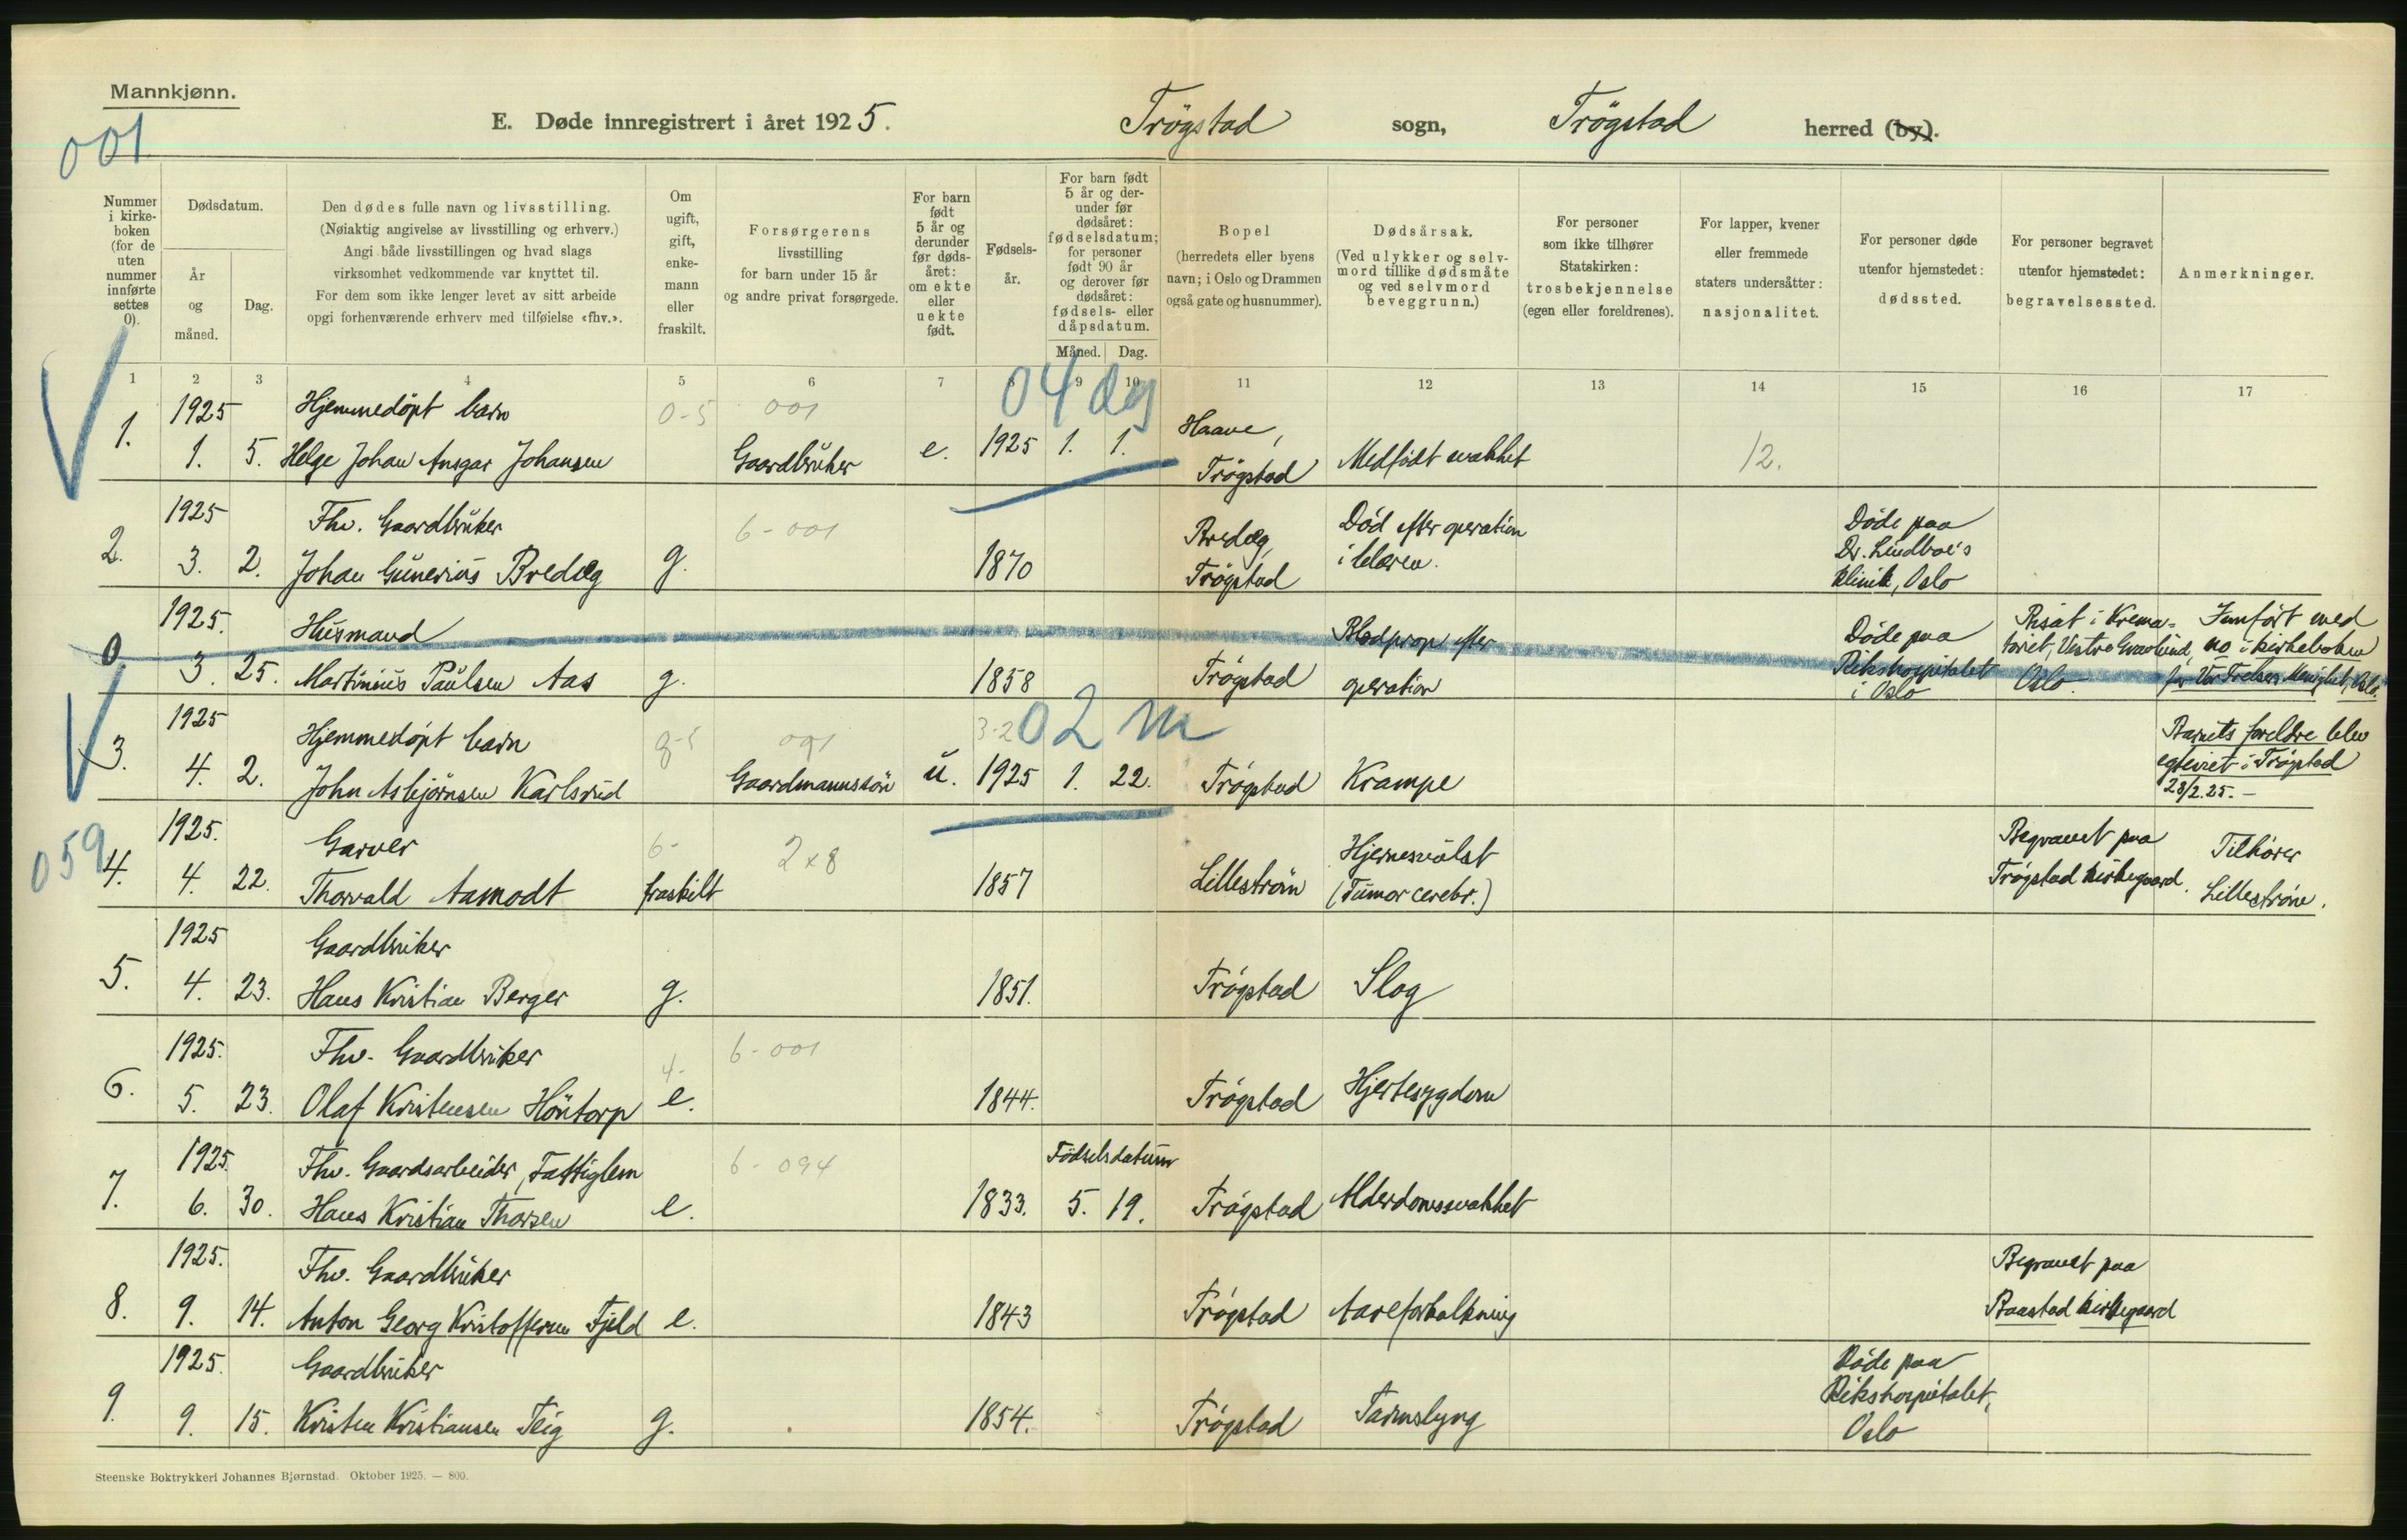 Mannkjønn.
001
E. Døde innregistrert i året 1925. Trögstad sogn, Trögstad herred (by).
Nummer i kirke-boken (for de uten nummer innførte settes 0).
Dødsdatum.
År og måned.
Dag.
Den dødes fulle navn og livsstilling.
(Nøiaktig angivelse av livsstilling og erhverv.)
Angi både livsstillingen og hvad slags
virksomhet vedkommende var knyttet til.
For dem som ikke lenger levet av sitt arbeide
opgi forhenværende erhverv med tilføielse «fhv.».
Om ugift, gift, enke-mann eller fraskilt.
Forsørgerens
livsstilling
for barn under 15 år
og andre privat forsørgede.
For barn født 5 år og derunder før døds-året: om ekte eller uekte født.
Fødsels-år.
For barn født 5 år og der-under før dødsåret: fødselsdatum; for personer født 90 år og derover før dødsåret: fødsels- eller dåpsdatum.
Måned. Dag.
Bopel
(herredets eller byens
navn; i Oslo og Drammen
også gate og husnummer).
Dødsårsak.
(Ved ulykker og selv-
mord tillike dødsmåte
og ved selvmord
beveggrunn.)
For personer
som ikke tilhører
Statskirken:
trosbekjennelse
(egen eller foreldrenes).
For lapper, kvener
eller fremmede
staters undersåtter:
nasjonalitet.
For personer døde
utenfor hjemstedet:
dødssted.
For personer begravet
utenfor hjemstedet:
begravelsessted.
Anmerkninger.
1 2 3 4 5 6 7 8 9 10 11 12 13 14 15 16 17
1925 Hjemmedöpt barn 0-5 001 04 dg Haave,
1. 1. 5. Helge Johan Ansgar Johansen Gaardbruker e. 1925 1. 1. Trögstad Medfödt svakhet 12.
1925 Fhv. Gaardbruker 6-001 Bredeg, Död efter operation Döde paa
2. 3. 2. Johan Gunerius Bredeg g. 1870 Trögstad i blæren. Dr. Lindboe's
klinik, Oslo
1925. Husmand Blodprop efter Döde paa Bisat i Krema- Innført med
0 3. 25. Martinius Paulsen Aas g. 1858 Trögstad operation Rikshospitalet toriet, Vestre Gravlund, no i kirkeboken
i Oslo Oslo. for Vor Frelsers Menighet, Oslo.
1925 Hjemmedöpt barn 001 02 m Barnets foreldre blev
3. 4. 2. John Asbjörnsen Karlsrud Gaardmannssön u. 1925 1. 22. Trögstad Krampe egteviet i Trögstad
28/2.25.-
059
1925. Garver 6- 2x8 Hjernesvulst Begravet paa Tilhører
4. 4. 22. Thorvald Aamodt fraskilt 1857 Lilleström (Tumor cerebr.) Trögstad kirkegaard. Lilleström.
1925 Gaardbruker
5. 4. 23. Hans Kristian Berger g. 1851. Trögstad Slag
1925. Fhv. Gaardbruker 4- 6-001
6. 5. 23. Olaf Kristensen Höntorp e. 1844. Trögstad Hjertesygdom
1925. Fhv. Gaardsarbeider, Fattiglem 6-094 Födselsdatum
7. 6. 30. Hans Kristian Thorsen e. 1833. 5. 19. Trögstad Alderdomssvakhet
1925. Fhv. Gaardbruker Begravet paa
8. 9. 14. Anton Georg Kristoffersen Fjeld e. 1843 Trögstad Aareforkalkning Baastad kirkegaard
1925. Gaardbruker Döde paa
9. 9. 15. Kristen Kristiansen Teig g. 1854. Trögstad Tarmslyng Rikshospitalet,
Oslo
Steenske Boktrykkeri Johannes Bjørnstad. Oktober 1925. — 800.